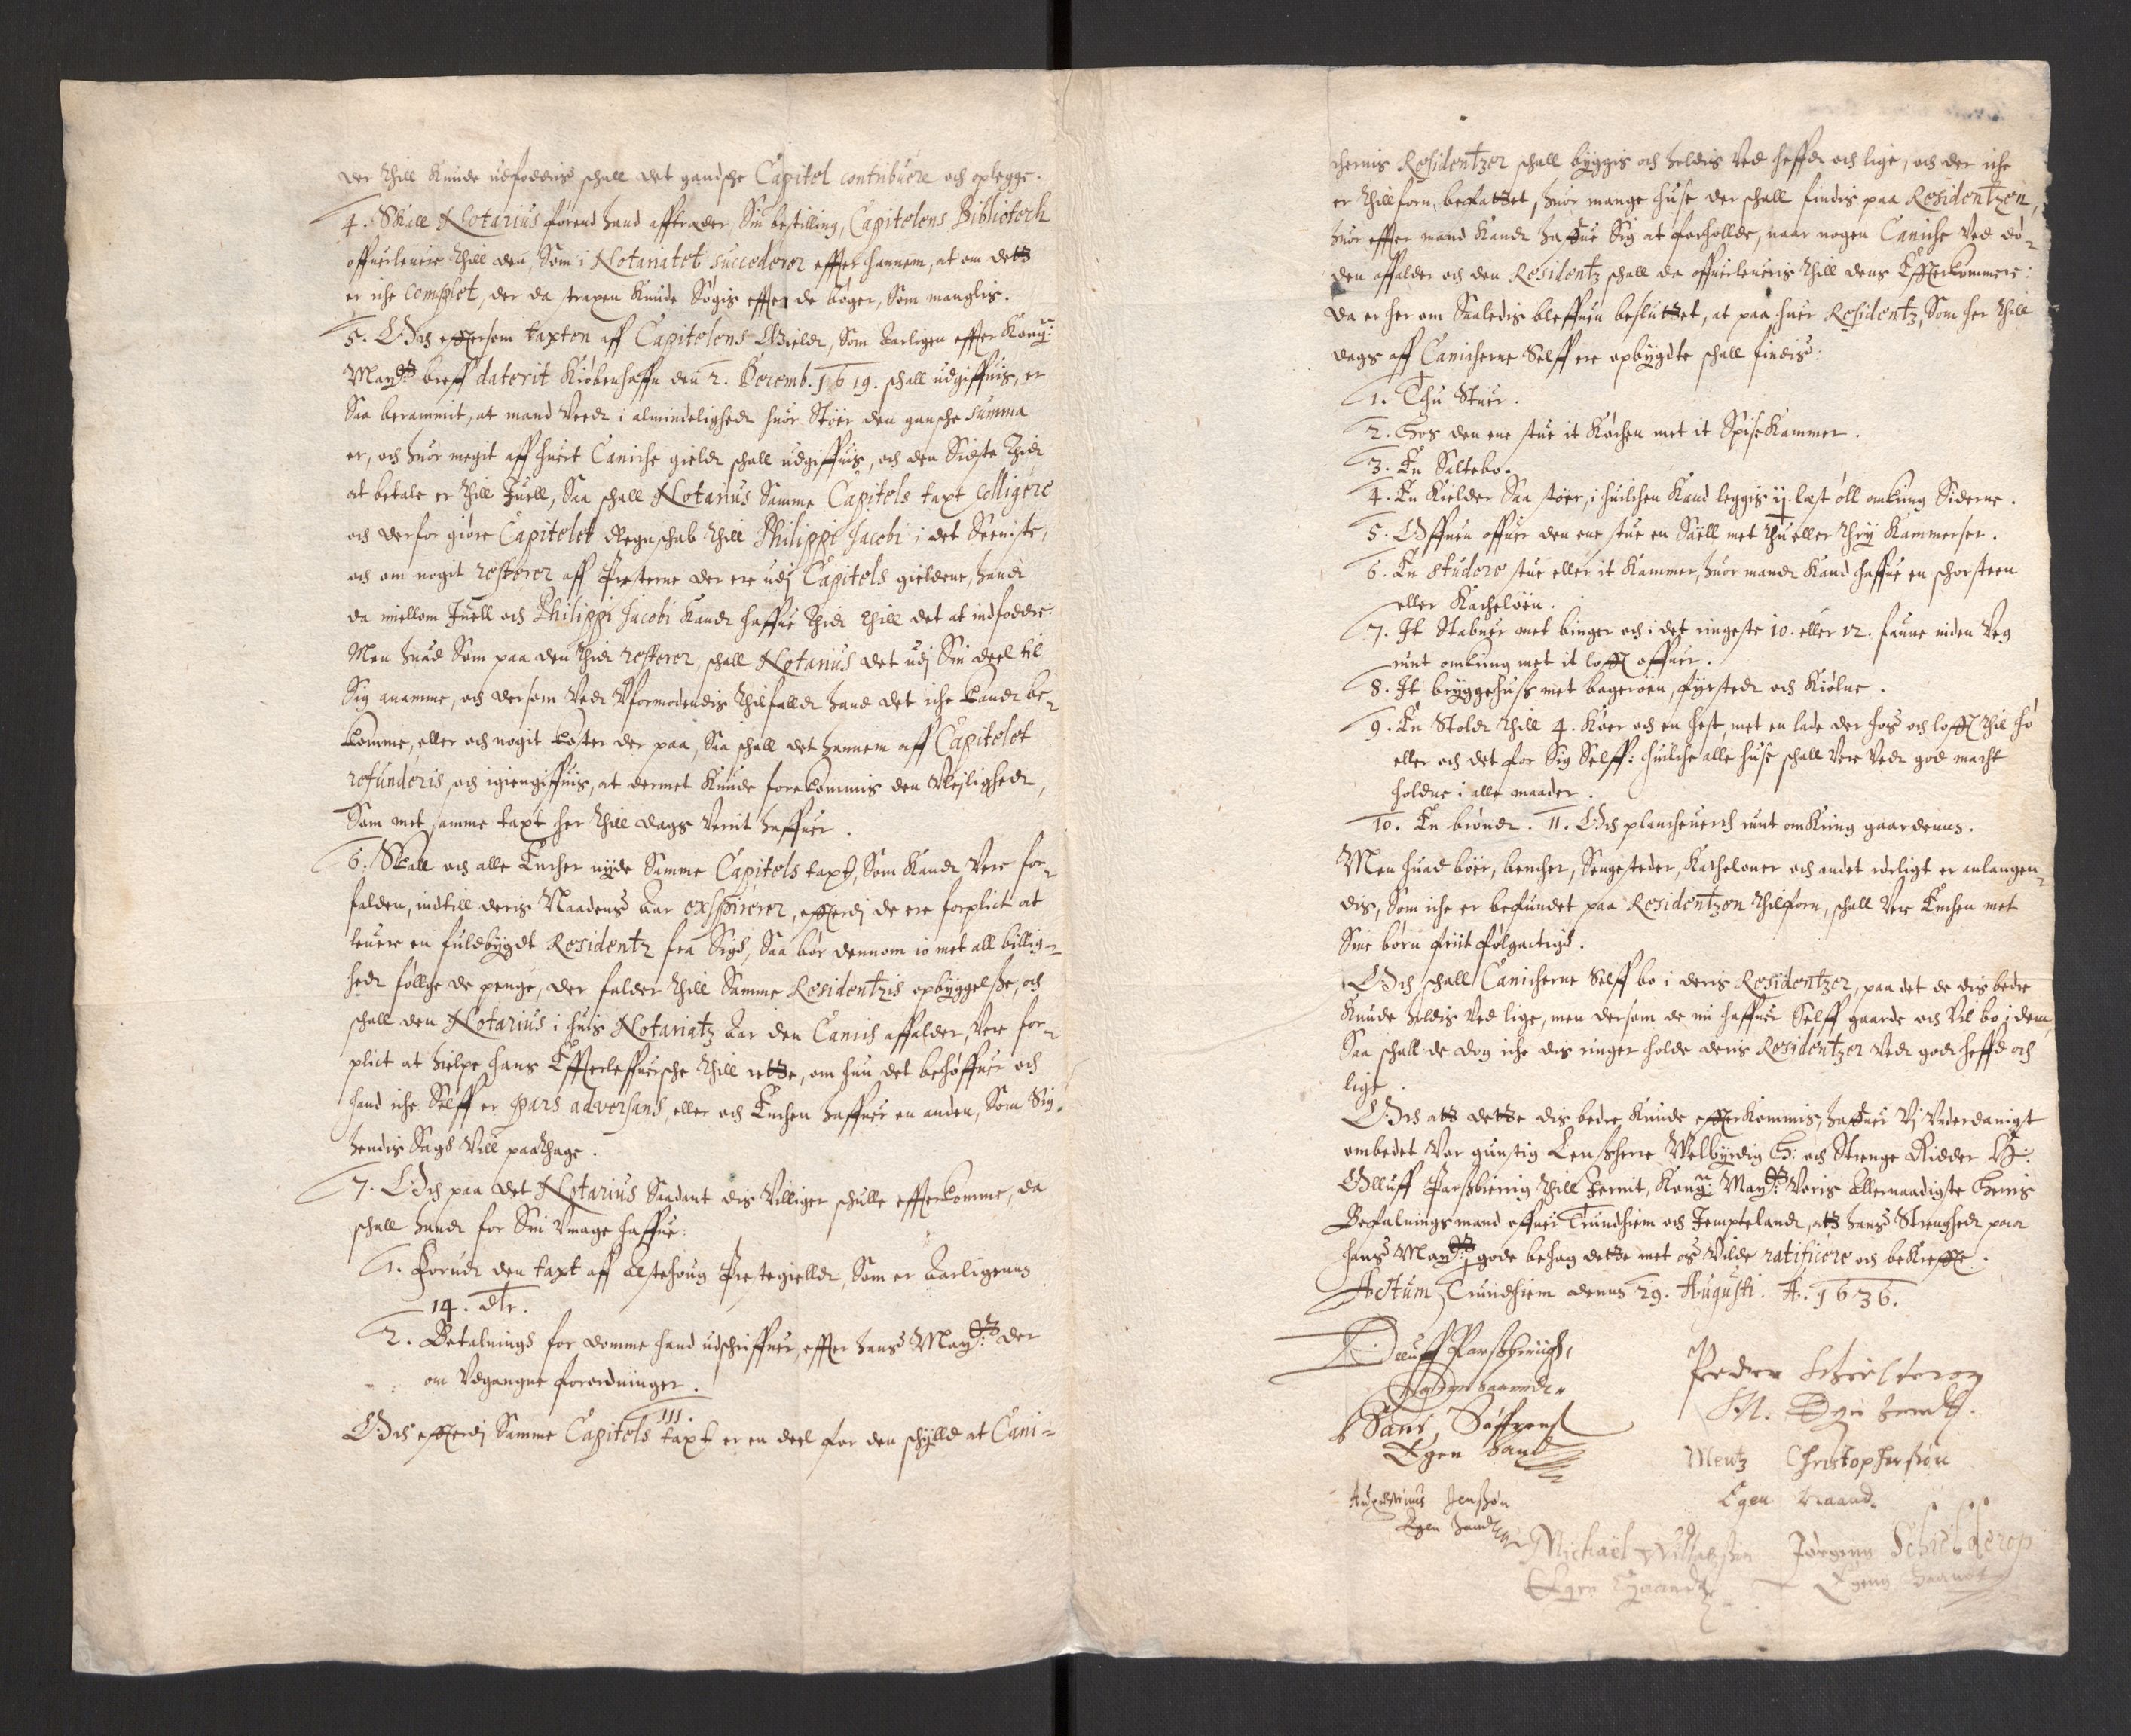 der thill kunde udfoddris schall det gandsche Capitel contribuere och oplegge.
4. Skall Notarius førend hand affträder Sin bestilling, Capitelens Bibliotech
offuerleuere thill den, Som i Notariatet succederer effter hannem, at om detz
er iche complet, der da straxen kunde Søgis effter de bøger, Som manglis.
5. Och effterfom taxten aff Capitelens Gield, Som aarligen effter Kong:
May:tz breff daterit Kiøbenhaffn den 2. Decemb. 1619. schall udgiffuis, er
Saa berammit, at mand veed i almindelighed huor Stoer den gansche summa
er, och huor megit aff huert Caniche gield schall udgiffuis, och den Sidste thid
at betale er thill Juell, Saa schall Notarius Samme Capitels taxt colligere
och derfor giøre Capitelet Regnschab thill Philippi Jacobi i det Seeniste,
och om nogit resterer aff Presterne der ere udj Capitels gieldene, hand
da imellom Juell och Philippi Jacobi kand haffue thid thill det at indfoddre.
Men huad Som paa den thid resterer, schall Notarius det udj Sin deel til
Sig anamme, och dersom ved Vformodendis thilfalld hand det iche kand be-
komme, eller och nogit koster der paa, Saa schall det hannem aff Capitelet
refunderis, och igiengiffuis, at dermet kunde forekommis den Vlejlighed,
Som met samme taxt her thill dags verit haffuer.
6. Skall och alle Encher nyde Samme Capitels taxt, Som kand vere for-
falden, indtill deris Naadens Aar exspirerer, effterdj de ere forplict at
leuere en fuldbygdt Residentz fra Sigh, Saa bør dennom io met all billig-
hed føllge de penge, der falder thill Samme Residentzis opbyggelsse, och
schall den Notarius i huis Notariatz Aar den Canich affalder, vere for-
plict at hielpe hans Effterleffuersche thill rette, om hun det behøffuer och
hand iche Selff er pars adversans, eller och Enchen haffuer en anden, Som Sig
hendis Sagh vill paathage.
7. Och paa det Notarius Saadant dis villiger schulle effterkomme, da
schall hand for Sin Vmage haffue:
1. Forud den taxt aff Alstehoug Prestegielld, Som er Aarligenns
14. dlr.
2. Betalningh for domme hand udschriffuer, effter hans May:tz der
om Vdgangne forordninger.
III.
Och effterdj Samme Capitels taxt er en deel for den schylld at Cani-
chernis Residentzer schall byggis och holdis ved heffd och lige, och der iche
er thillforn befattet, huor mange huse der schall findis paa Residentzen,
huor effter mand kand haffue Sig at forhollde, naar nogen Caniche ved dø-
den affalder och den Residentz schall da offuerleueris thill dens Effterkommere:
da er her om Saaledis bleffuen besluttet, at paa huer Residentz, Som her thill
dags aff Canicherne Selff ere opbygdte schall findis:
1. Thu Stuer.
2. Hos den ene stue it Køchen met it SpiseKammer.
3. En Saltebo.
4. En Kielder Saa stoer, i huilchen kand leggis ij. læst øll omkring Siderne.
5. Offuen offuer den ene stue en Saell met thu eller thry Kammerser.
6. En studere stue eller it Kammer, huor mand kand haffue en schorsteen
eller Kacheloen.
7. It Stabuer met binger och i det ringeste 10. eller 12. faune inden Veg
runt omkring met it lofft offuer.
8. It bryggehuss met bageroen, fyrsted och Kiølne.
9. En Stold thill 4. Køer och en hest, met en lade der hos och lofft thil hø
eller och det for Sig Selff: huilche alle huse schall vere ved god macht
holdne i alle maader.
10. En brønd. 11. Och plancheuerch runt omkring gaardenns.
Men huad boer, bencher, Sengesteder, Kacheloner och andet rørligt er anlangen-
dis, Som iche er befundet paa Residentzen thilforn, schall vere Enchen met
Sine børn friit følgactigh.
Och schall Canicherne Selff bo i deris Residentzer, paa det de dis bedre
kunde holdis ved lige, men dersom de nu haffuer Selff gaarde och vil bo i dem,
Saa schall de dog iche dis ringer holde deris Residentzer ved god heffd och
lige.
Och att dette dis bedre kunde effterkommis, haffuer Vj Vnderdanigt
ombedet Vor gunstig Lensherre Velbyrdig H: och Strenge Ridder H:
Olluff Parssbierrig thill Jernit, Kong: May:tz Voris Allernaadigste Herris
Befalningsmand offuer Trundhiem och Jempteland, att hans Strenghed paa
hans May:tz gode behag dette met os vilde ratificere och bekreffte.
Actum Trundhiem denns 29. Augusti. A. 1636.
Oluff Parssberigh,
Egen haand
Peder Schielderop
M. Egen haand.
Hans Søffrens
Egen Hand
Mentz Christophersøn
Egen haand.
Jenssøn
Egen hand
Michael
Egen Haand
Jørgenn Schielderop
Egenn haand